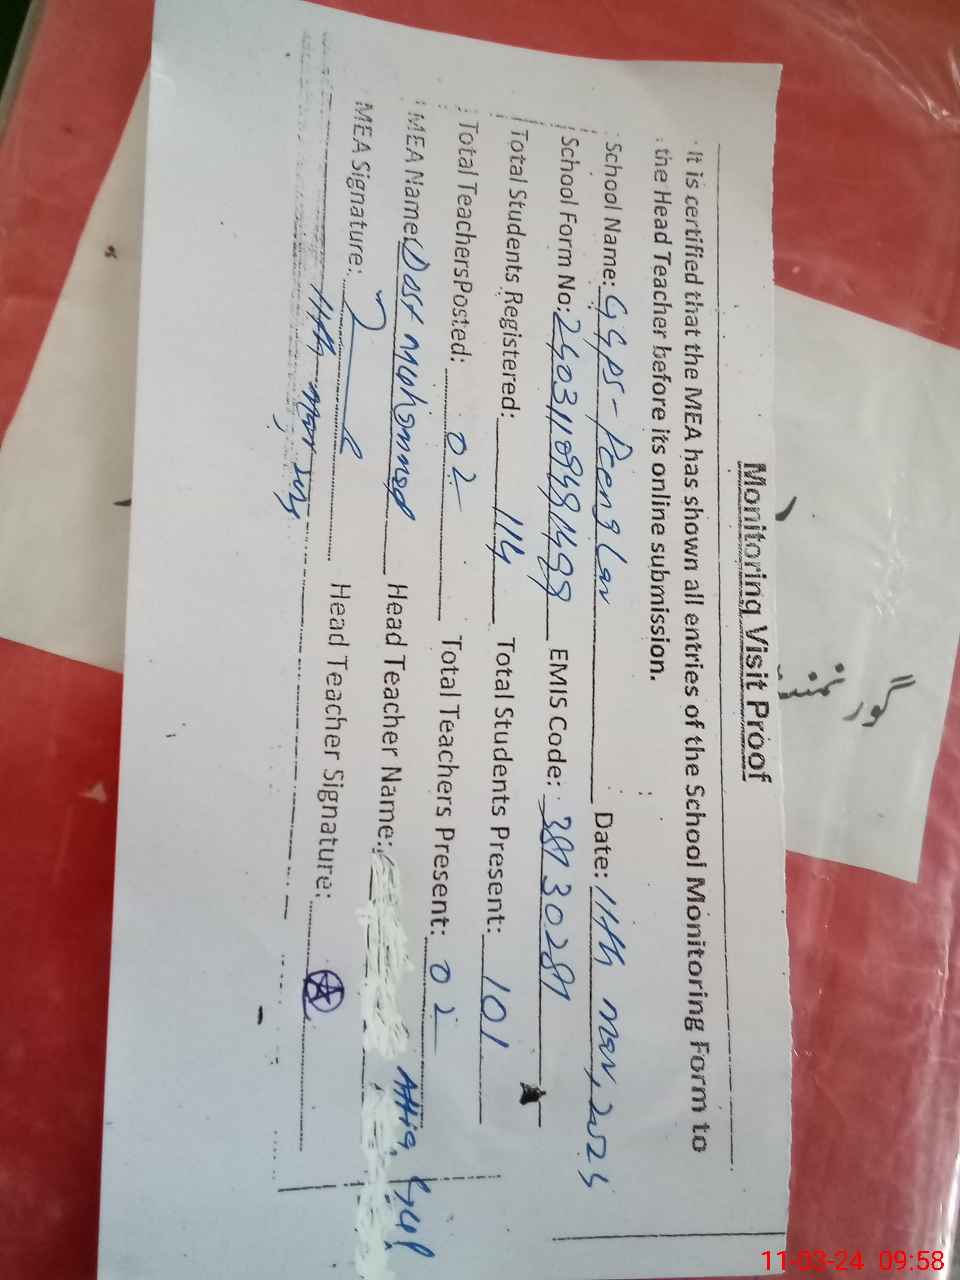 Monitoring Visit Proof
It is certified that the MEA has shown all entries of the School Monitoring Form to
the Head Teacher before its online submission.
School Name: GGPS- Date: 11th mar, 202
School Form No: EMIS Code:
Total Students Registered: 114 Total Students Present: 101
Total TeachersPosted: 02 Total Teachers Present: 02
MEA Name: Dost muhammad Head Teacher Name: Attia Gul
MEA Signature: Head Teacher Signature:
11th mar
گورنمنٹ
11-03-24 09:58